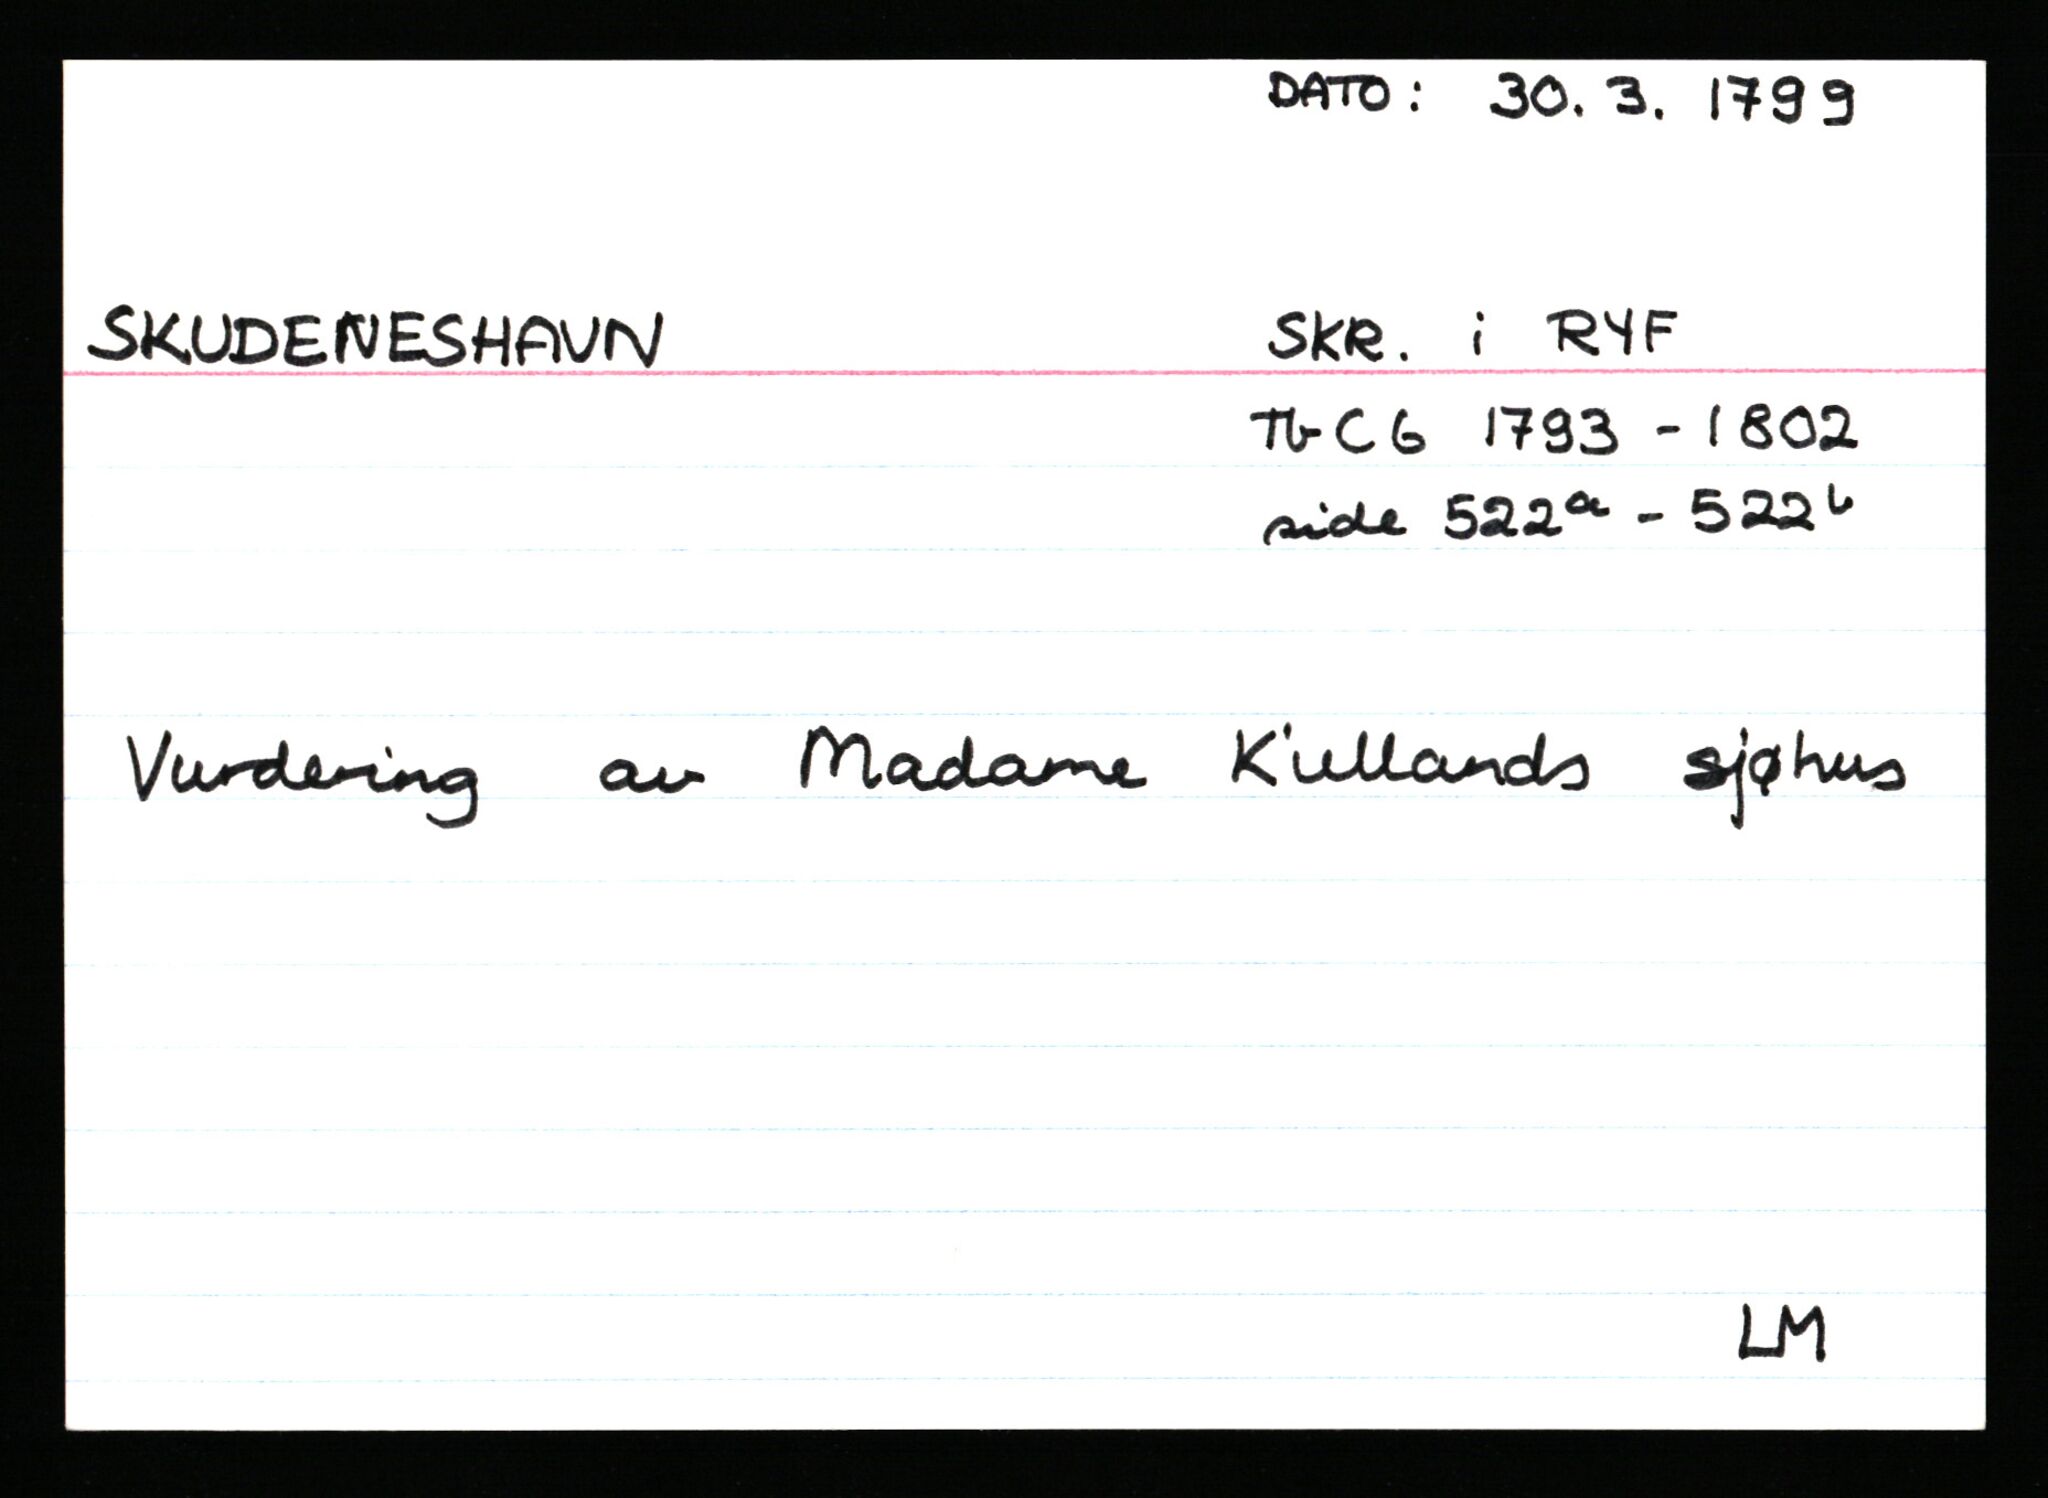 DATO: 30. 3. 1799
SKUDENESHAVN SKR. i RYF
Tb C 6 1793 - 1802
side 522a - 522b
Vurdering av Madame Kiellands sjøhus
LM